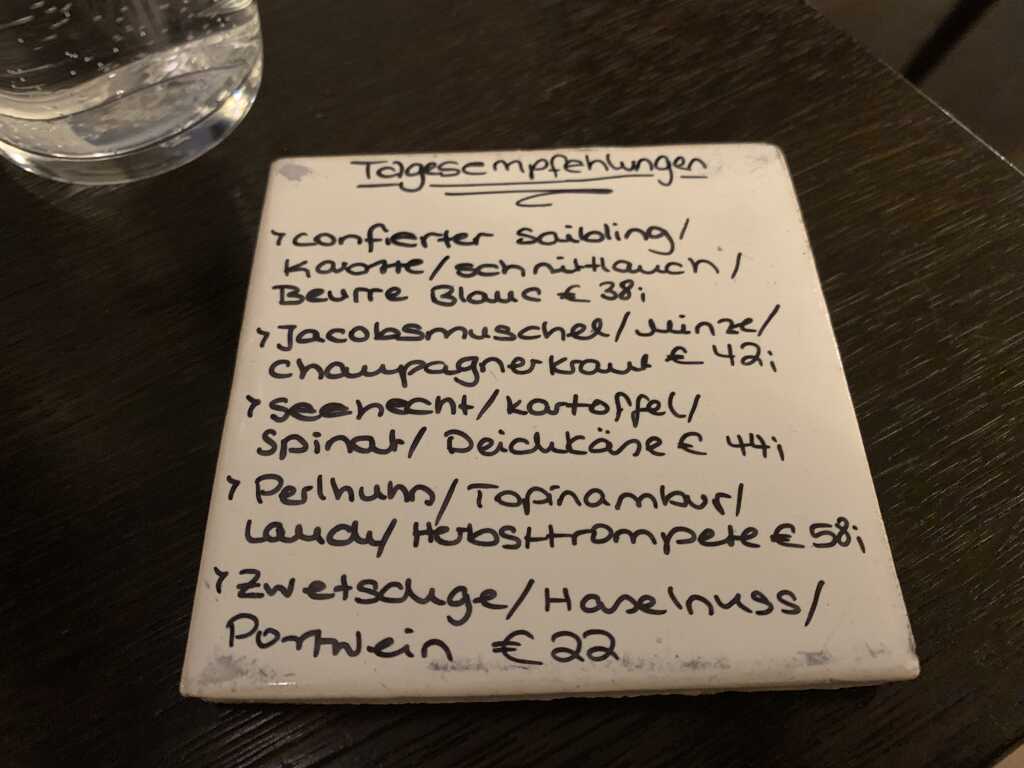 Tagesempfehlungen
confierter Saibling/
Karotte/schnittlauch/
Beurre Blanc € 38;
Jacobsmuschel/Minze/
Champagnerkraut € 42;
Seehecht/Kartoffel/
Spinat/ Deichkäse € 44;
Perlhuhn/Topinambur/
Lauch/Herbsttrompete € 58;
Zwetschge/Haselnuss/
Portwein € 22